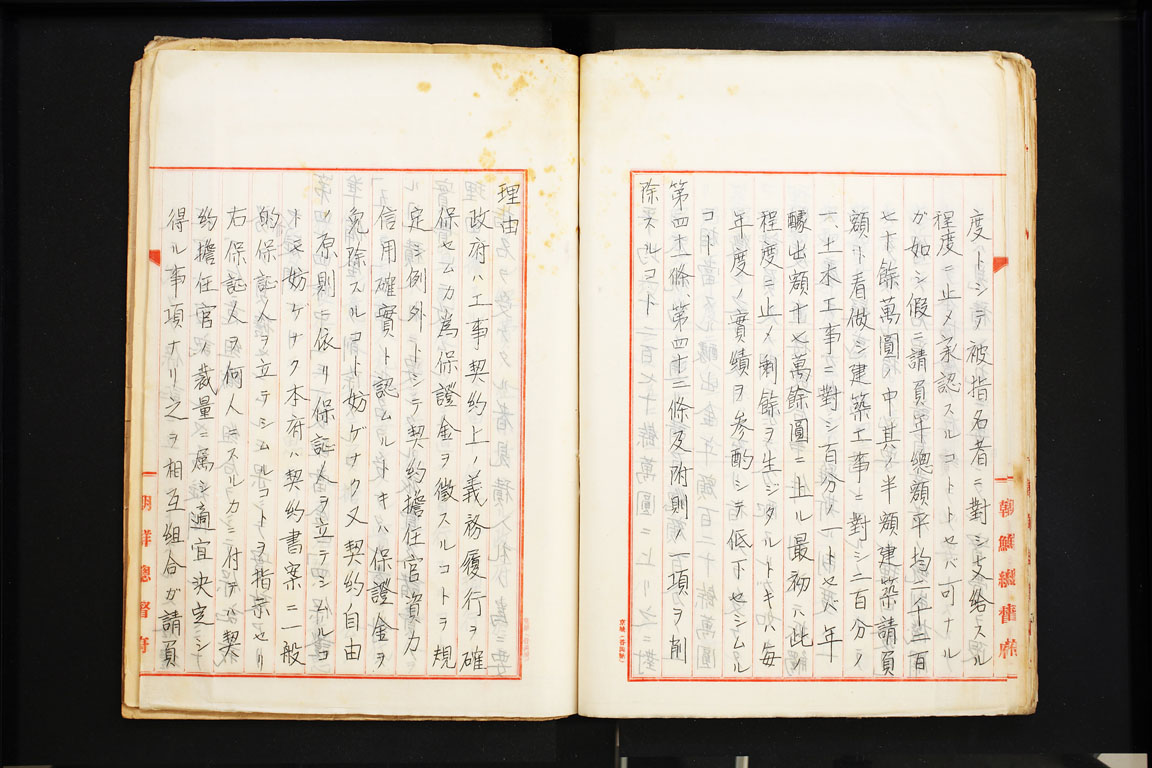 度トシテ被指名者ニ對シ支給スル
程度ニ止メ承認スルコトトセバ可ナル
カ如シ假ニ請負年總額平均二千二百
七十餘萬圓ノ中其ノ半額建築請負
額ト看做シ建築工事ニ對シ二百分ノ
一、土木工事ニ對シ百分ノ一トセバ年
醵出額十七萬餘圓ニ上ル最初ハ此ノ
程度ニ止メ剩餘ヲ生ジタルトキハ毎
年度ノ實績ヲ參酌シテ低下セシムル
コト
第四十條、第四十二條及附則ノ一項ヲ削
除スルコト
理由
政府ハ工事契約上ノ義務履行ヲ確
保セムカ為保證金ヲ徴スルコトヲ規
定シ例外トシテ契約擔任官資力
信用確實ト認ムルトキハ保證金ヲ
免除スルコト妨ゲナク又契約自由
ノ原則ニ依リ保証人ヲ立テシムルコ
トモ妨ケナク本府ハ契約書案ニ一般
的保証人ヲ立テシムルコトヲ指示セリ
右保証人ヲ何人ニスルカニ付テハ契
約擔任官ノ裁量ニ屬シ適宜決定シ
得ル事項ナリ之ヲ相互組合ガ請負
朝鮮總督府
朝鮮總督府